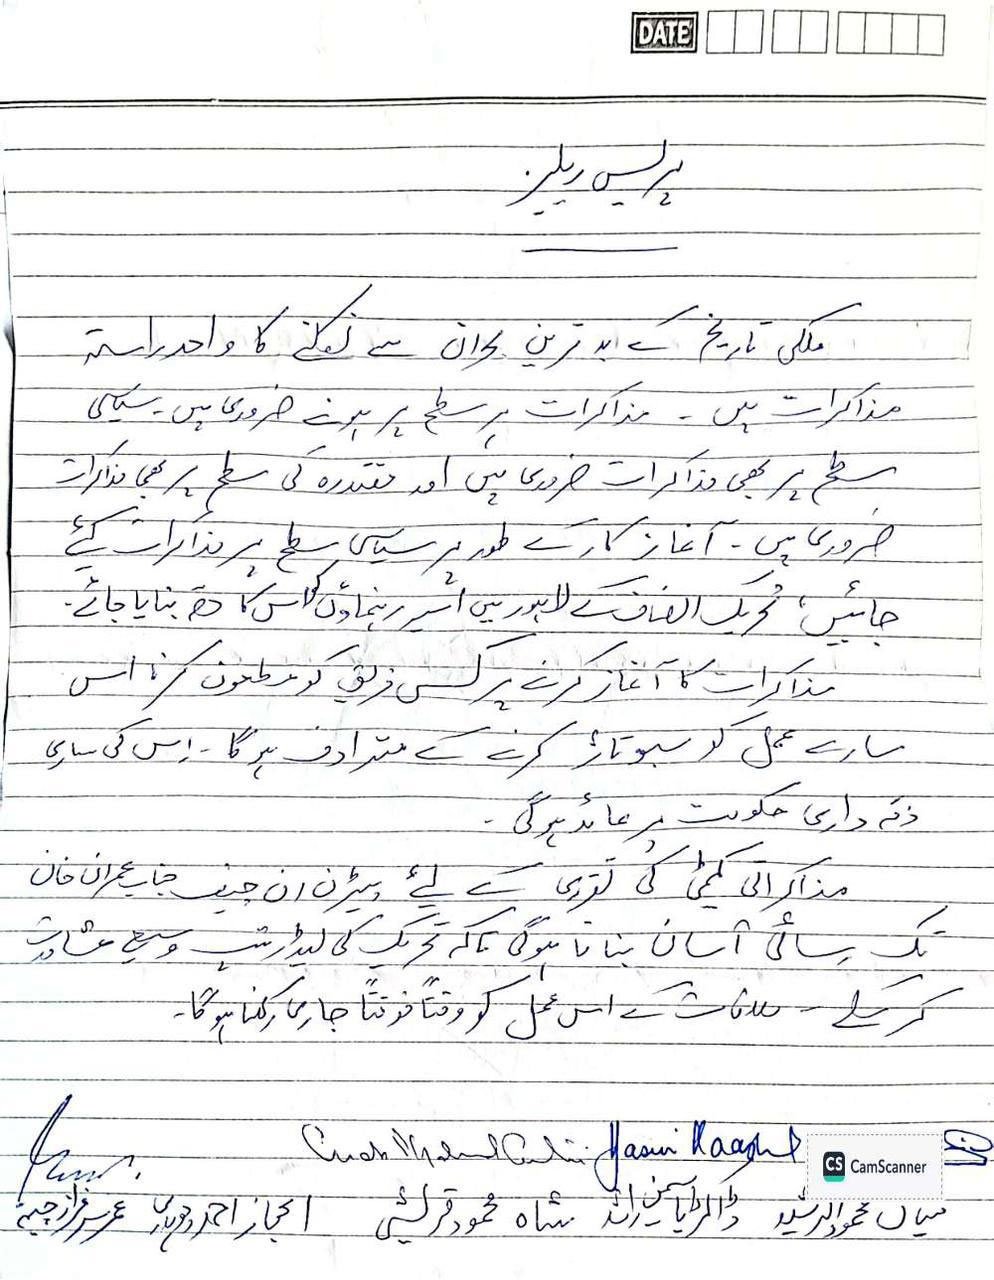 DATE
پریس ریلیز
ملکی تاریخ کے بد ترین بحران سے نکلنے کا واحد راستہ
مذاکرات ہیں ۔ مذاکرات ہر سطح پر ہونے ضروری ہیں ۔ سیاسی
سطح پر بھی مذاکرات ضروری ہیں اور مقتدرہ کی سطح پر بھی مذاکرات
ضروری ہیں ۔ آغاز کار کے طور پر سیاسی سطح پر مذاکرات کیئے
جائیں، تحریک انصاف کے لاہور میں اسیر رہنماؤں کو اس کا حصہ بنایا جائے ۔
مذاکرات کا آغاز کرنے پر کسی فریق کو مطعون کرنا اس
سارے عمل کو سبوتاژ کرنے کے مترادف ہو گا ۔ اِس کی ساری
ذمہ داری حکومت پر عائد ہو گی ۔
مذاکراتی کمیٹی کی تقرری کے لیئے پیٹرن ان چیف جناب عمران خان
تک رسائی آسان بنانا ہوگی تاکہ تحریک کی لیڈرشپ وسیع مشاورت
کر سکے ۔ ملاقات کے اس عمل کو وقتاً فوقتاً جاری رکھنا ہو گا ۔
Yasmin Raashid
CS CamScanner
میاں محمود الرشید ڈاکٹر یاسمین راشد شاہ محمود قریشی اعجاز احمد چوہدری عمر سرفراز چیمہ